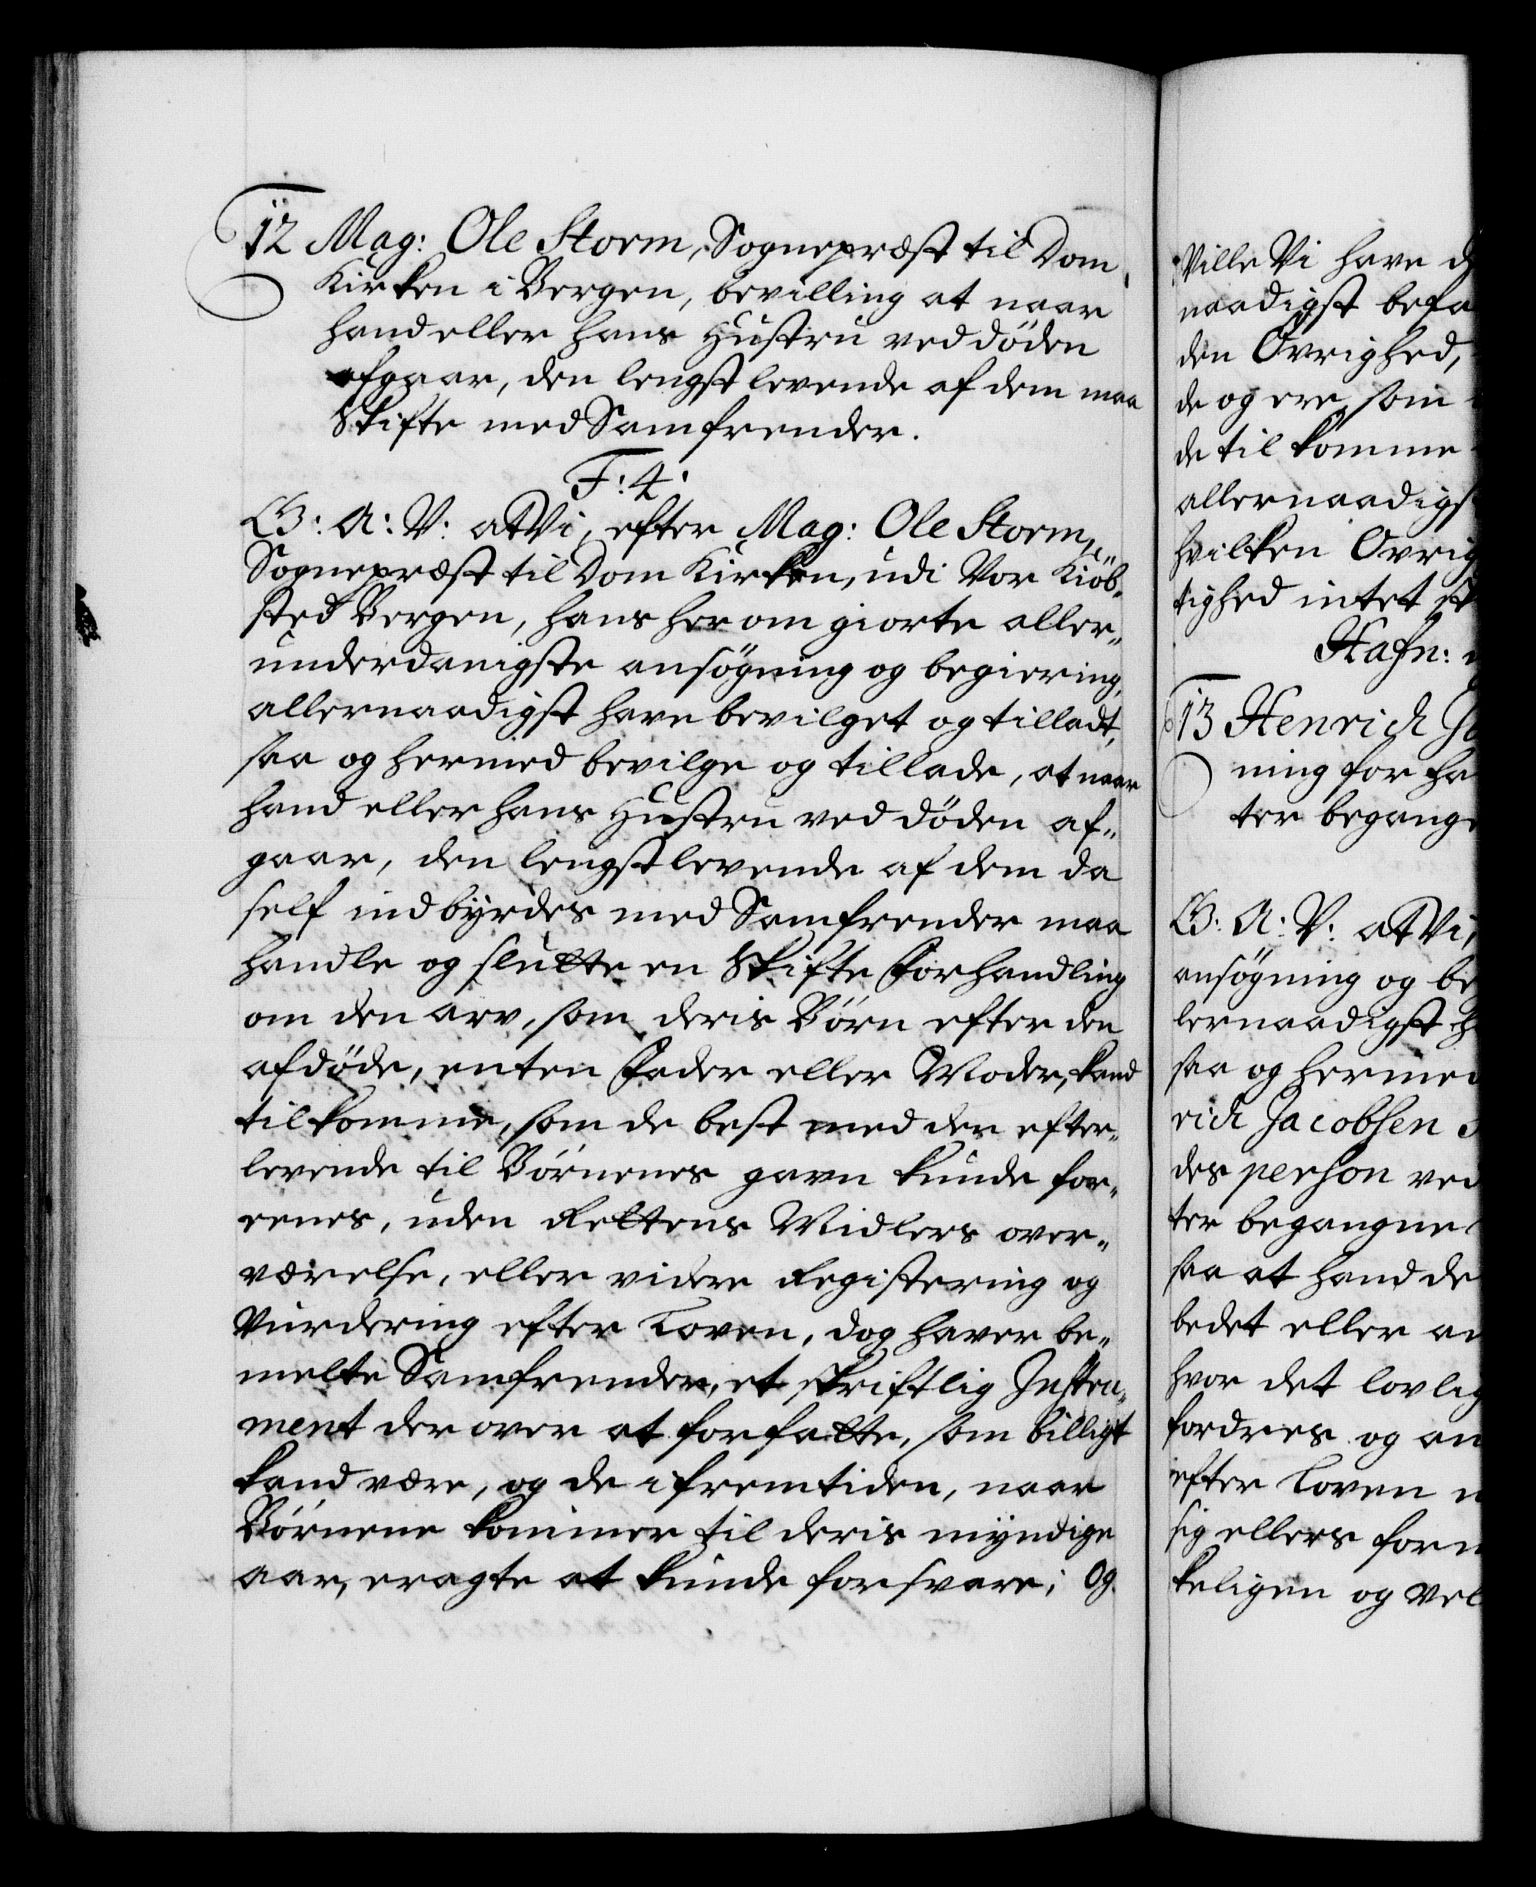 12 Mag: Ole Storm, Sognepræst til Dom
Kirken i Bergen, bevilling at naar
hand eller hans Hustru ved døden
afgaar, den lengst levende af dem maa
Skifte med Samfrender.
F: 4.
G: A: V: at Vi, efter Mag: Ole Storm,
Sognepræst til Dom Kirken, udi Vor Kiøb-
sted Bergen, hans her om giorte aller-
underdanigste ansøgning og begiering,
allernaadigst have bevilget og tilladt,
saa og hermed bevilge og tillade, at naar
hand eller hans Hustru ved døden af-
gaar, den lengst levende af dem da
self indbyrdes med Samfrender maa
handle og slutte en Skifte Forhandling
om den arv, som deris Børn efter den
afdøde, enten Fader eller Moder, kand
tilkomme, som de best med den efter-
levende til Børnenes gavn kunde for-
eenes, uden Rettens Midlers over-
værelse, eller videre Registering og
Vurdering efter Loven, dog haver be-
melte Samfrender, et skriftlig Instru-
ment der over at forfatte, som billigt
kand være, og de i fremtiden, naar
Børnene kommer til deris myndige
aar, eragte at kunde forsvare; Og
Ville Vi have
naadigst befa
den Øvrighed,
de og ere, som
de til komme
allernaadigst
hvilken Øvrig
tighed intet
Hafn:
13 Henrich
ning for ha
ter begange
G: A: V: at Vi,
ansøgning og be
lernaadigst h
saa og hermed
rich Jacobsen
des person ved
ter begangne
saa at hand de
bedet eller an
hvor det lovlig
fordres og an
efter Loven
sig ellers form
keligen og vel